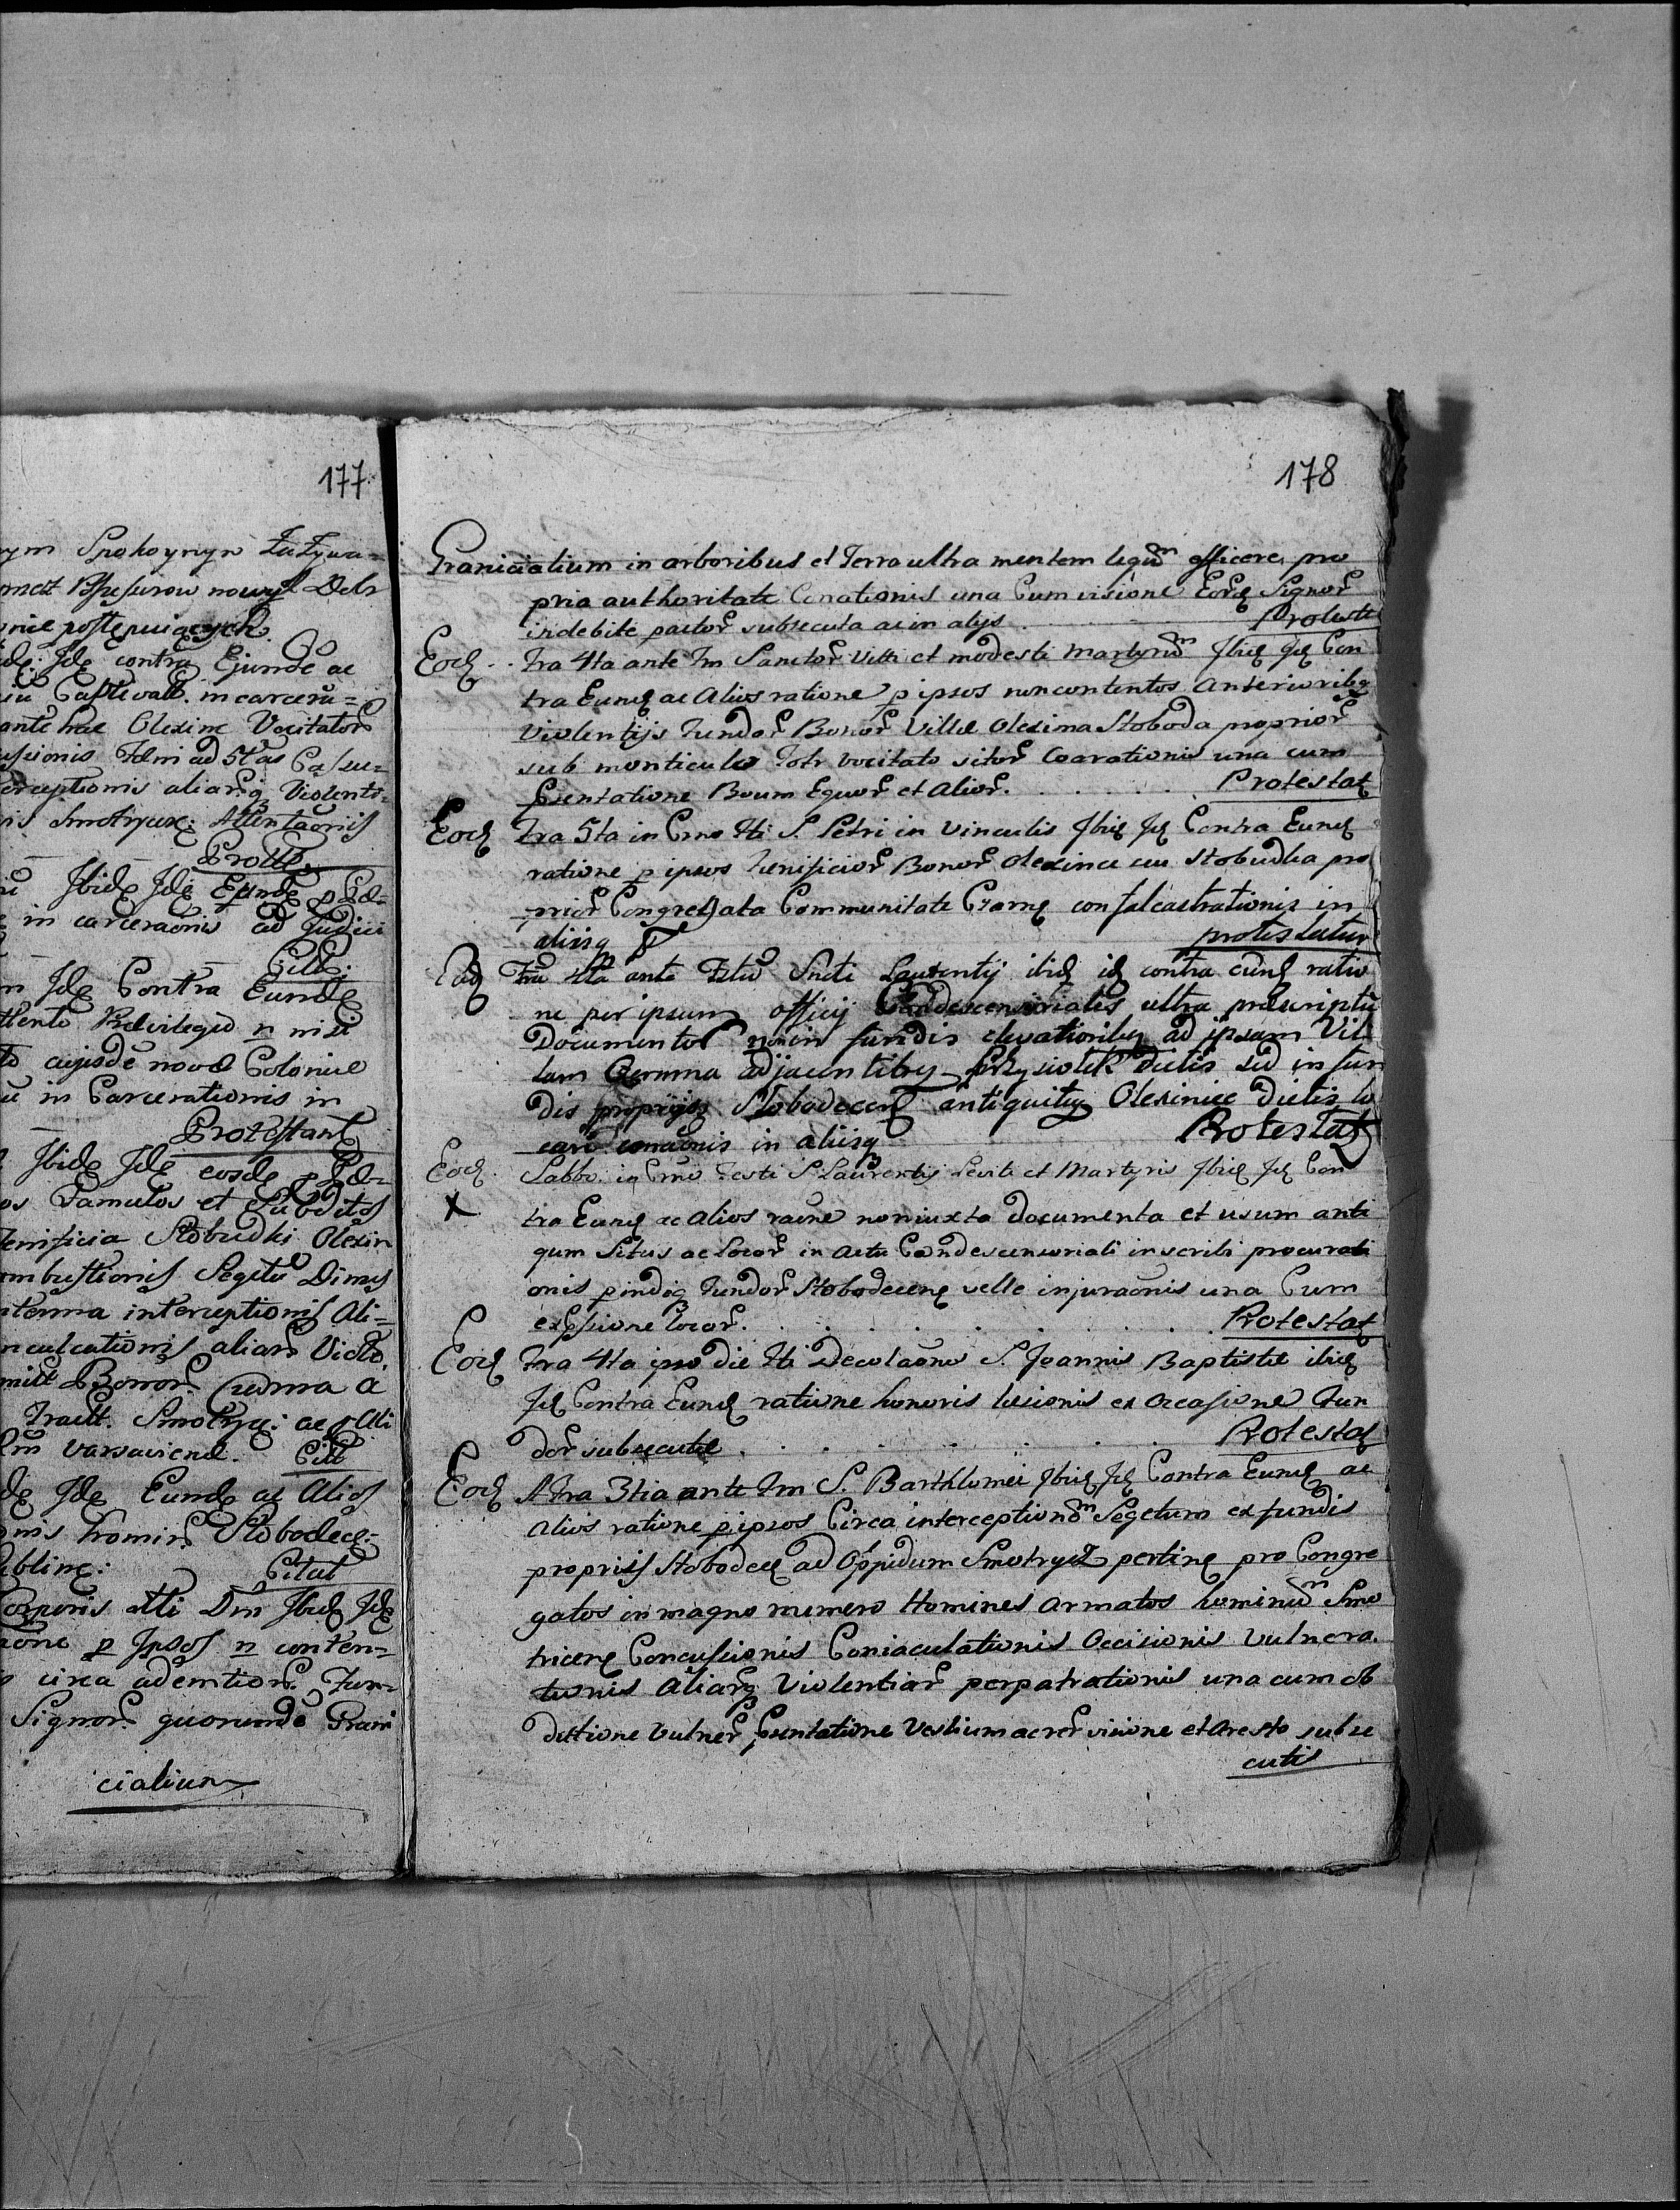 177
ym Spokoynym Zazywa=
nie postępuiących.
Jdę contra Ejundē ac
Captivatt. incarcerā=
ante hac Olexine Vocitator
usionis Fdmi ad 5tas Casu=
erceptionis aliarq Violento=
is Smotrycē: Attentaōnis
Protte.
Ibidę Jdę Eundē p
in carceraōnis ad Judici
Citt:
Jdę Contra Eundę
Privilegio n nisi
cujusdē novæ Coloniæ
in Carcerationis in
Protestant
Ibidę Jdę eosdę p
os Famulos et Subditos
enificia Slobudki Olexin
mbustionis Segetū Dimis
interceptionis Ali=
nculcationis aliarō Viole.
Bonor. Czarna a
Tractt. Smotryc: ac Ali
Varsaviend. Citt
Jdę Eundę ac Alios
homin. Slobodece=
ublinę: Citat
orporis tti Dm Ibidę Jdę
one p Ipsos n conten=
circa ademtion. Fun=
Signor. quorundē Grani
cialium
178
Granicialium in arboribus et Terra ultra mentem legum efficere, pro
pria authoritate Conationis una Cum visione Eorę Signor
indebite pactor subsecuta ac in alijs . . . Protestt
Eodę . . Fra 4ta ante Fm Sanctor Viti et modesti Martyrum Ibidę Jdę Con
tra Eundę ac Alios ratione p ipsos non contentos Anterioribq
Violentijs Fundor Bonor Villæ Olexina Sloboda proprior
sub monticulo Totr vocitato sitor Coarationis una cum
psentatione Boum Equor et Alior. . . . . . . Protestat
Eodę Fra 5ta in Crno tti S. Petri in Vinculis Ibidę Jdę Contra Eundę
ratione p ipsos Fenificior Bonor Olexince seu Slobudka pro
prior Congregata Communitate Czarnę confalcastrationis in
aliisq protestatur
Eodę Fra 4ta ante Festū Sncti Laurentij ibidę idę contra eundę ratio
ne per ipsum officij Condescensorialis ultra præscriptū
Documentor non in fundis elevatioribq ad ipsam Vil
lam Czarna adjacentibq Przysiołek dictis sed in fun
dis proprijs Slobodecenę antiquitq Olexince dictis lo
carō conaōnis in aliisq Protestat
Eodę . Sabbo in Crno Festi S Laurentij Levite et Martyris Ibidę Jdę Con
X tra Eundę ac Alios raōne non iuxta documenta et usum anti
qum Situs ac Locor in actu Condescensoriali inscribi procurati
onis pindoq Fundor Slobodecenę velle injuraōnis una Cum
expssione locor. . . . . . . . . Protestat
Eodę Fra 4ta ipso die tti Decolaōnis S. Joannis Baptistæ ibidę
Jdę Contra Eundę ratione honoris læsionis ex occasione Fun
dor subsecutæ . . . . . . Protestat
Eodę Fra 3tia ante Fm S. Barthlomei Ibidę Jdę Contra Eundę ac
Alios ratione p ipsos Circa interceptionem Segetum ex fundis
propriis Slobodecę ad Oppidum Smotrycz pertinę pro Congre
gatos in magno numero Homines armatos hominum Smo
tricenę Concusionis Coniaculationis Occisionis Vulnera.
tionis Aliarq Violentiar perpatrationis una cum ob
ductione Vulner, psentatione Vestium ac rer visione et Aresto subse
cutis